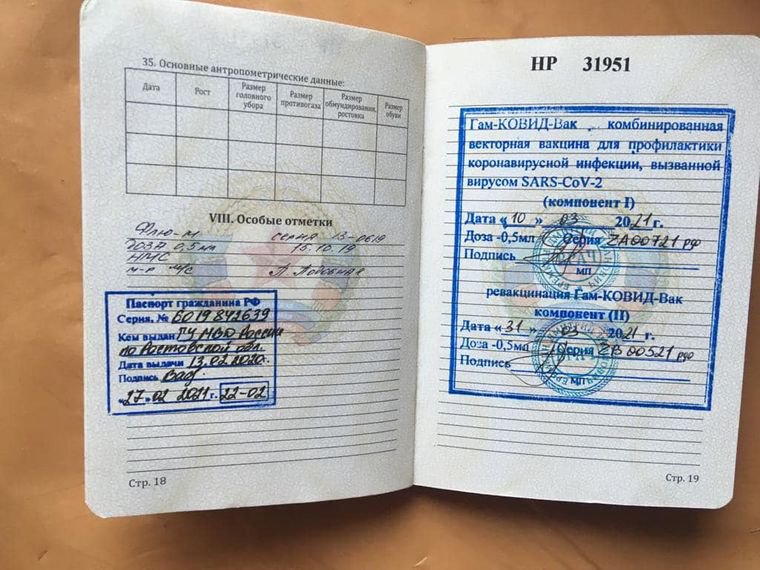 35. Основные антропометрические данные:
Дата Рост Размер головного убора Размер противогаза Размер обмундирования, ростовка Размер обуви
VIII. Особые отметки
Флю-М серия 13-0619
доза 0,5мл 15.10.19
НМС
м-р м/с
Паспорт гражданина РФ
Серия, № 6019 872639
Кем выдан ГУ МВД России
по Ростовской обл.
Дата выдачи 13.02.2020г.
Подпись
«27» 02 2021 г. 22-02
Стр. 18
НР 31951
Гам-КОВИД-Вак комбинированная
векторная вакцина для профилактики
коронавирусной инфекции, вызванной
вирусом SARS-CoV-2
(компонент I)
Дата «10 » 03 2021 г.
Доза -0,5мл Серия ZA00721 РФ
Подпись
МП
ревакцинация Гам-КОВИД-Вак
компонент (II)
Дата «31 » 03 2021 г.
Доза -0,5мл Серия ZB00521 РФ
Подпись
МП
Стр. 19